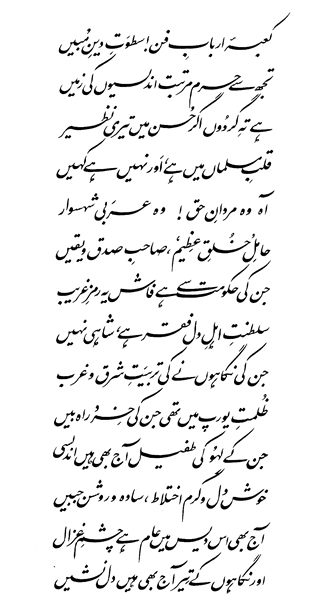 کعبۂ اربابِ فن! سطوتِ دینِ مُبیں
تجھ سے حرم مرتبت اندلسیوں کی زمیں
ہے تہِ گردُوں اگر حُسن میں تیری نظیر
قلبِ مسلماں میں ہے، اَور نہیں ہے کہیں
آہ وہ مردانِ حق! وہ عَربی شہسوار
حاملِ ’خُلقِ عظیم‘، صاحبِ صدق و یقیں
جن کی حکومت سے ہے فاش یہ رمزِ غریب
سلطنتِ اہلِ دل فقر ہے، شاہی نہیں
جن کی نگاہوں نے کی تربیَتِ شرق و غرب
ظُلمتِ یورپ میں تھی جن کی خِرد راہ بیں
جن کے لہُو کی طفیل آج بھی ہیں اندلسی
خوش دل و گرم اختلاط، سادہ و روشن جبیں
آج بھی اس دیس میں عام ہے چشمِ غزال
اور نگاہوں کے تیر آج بھی ہیں دل نشیں